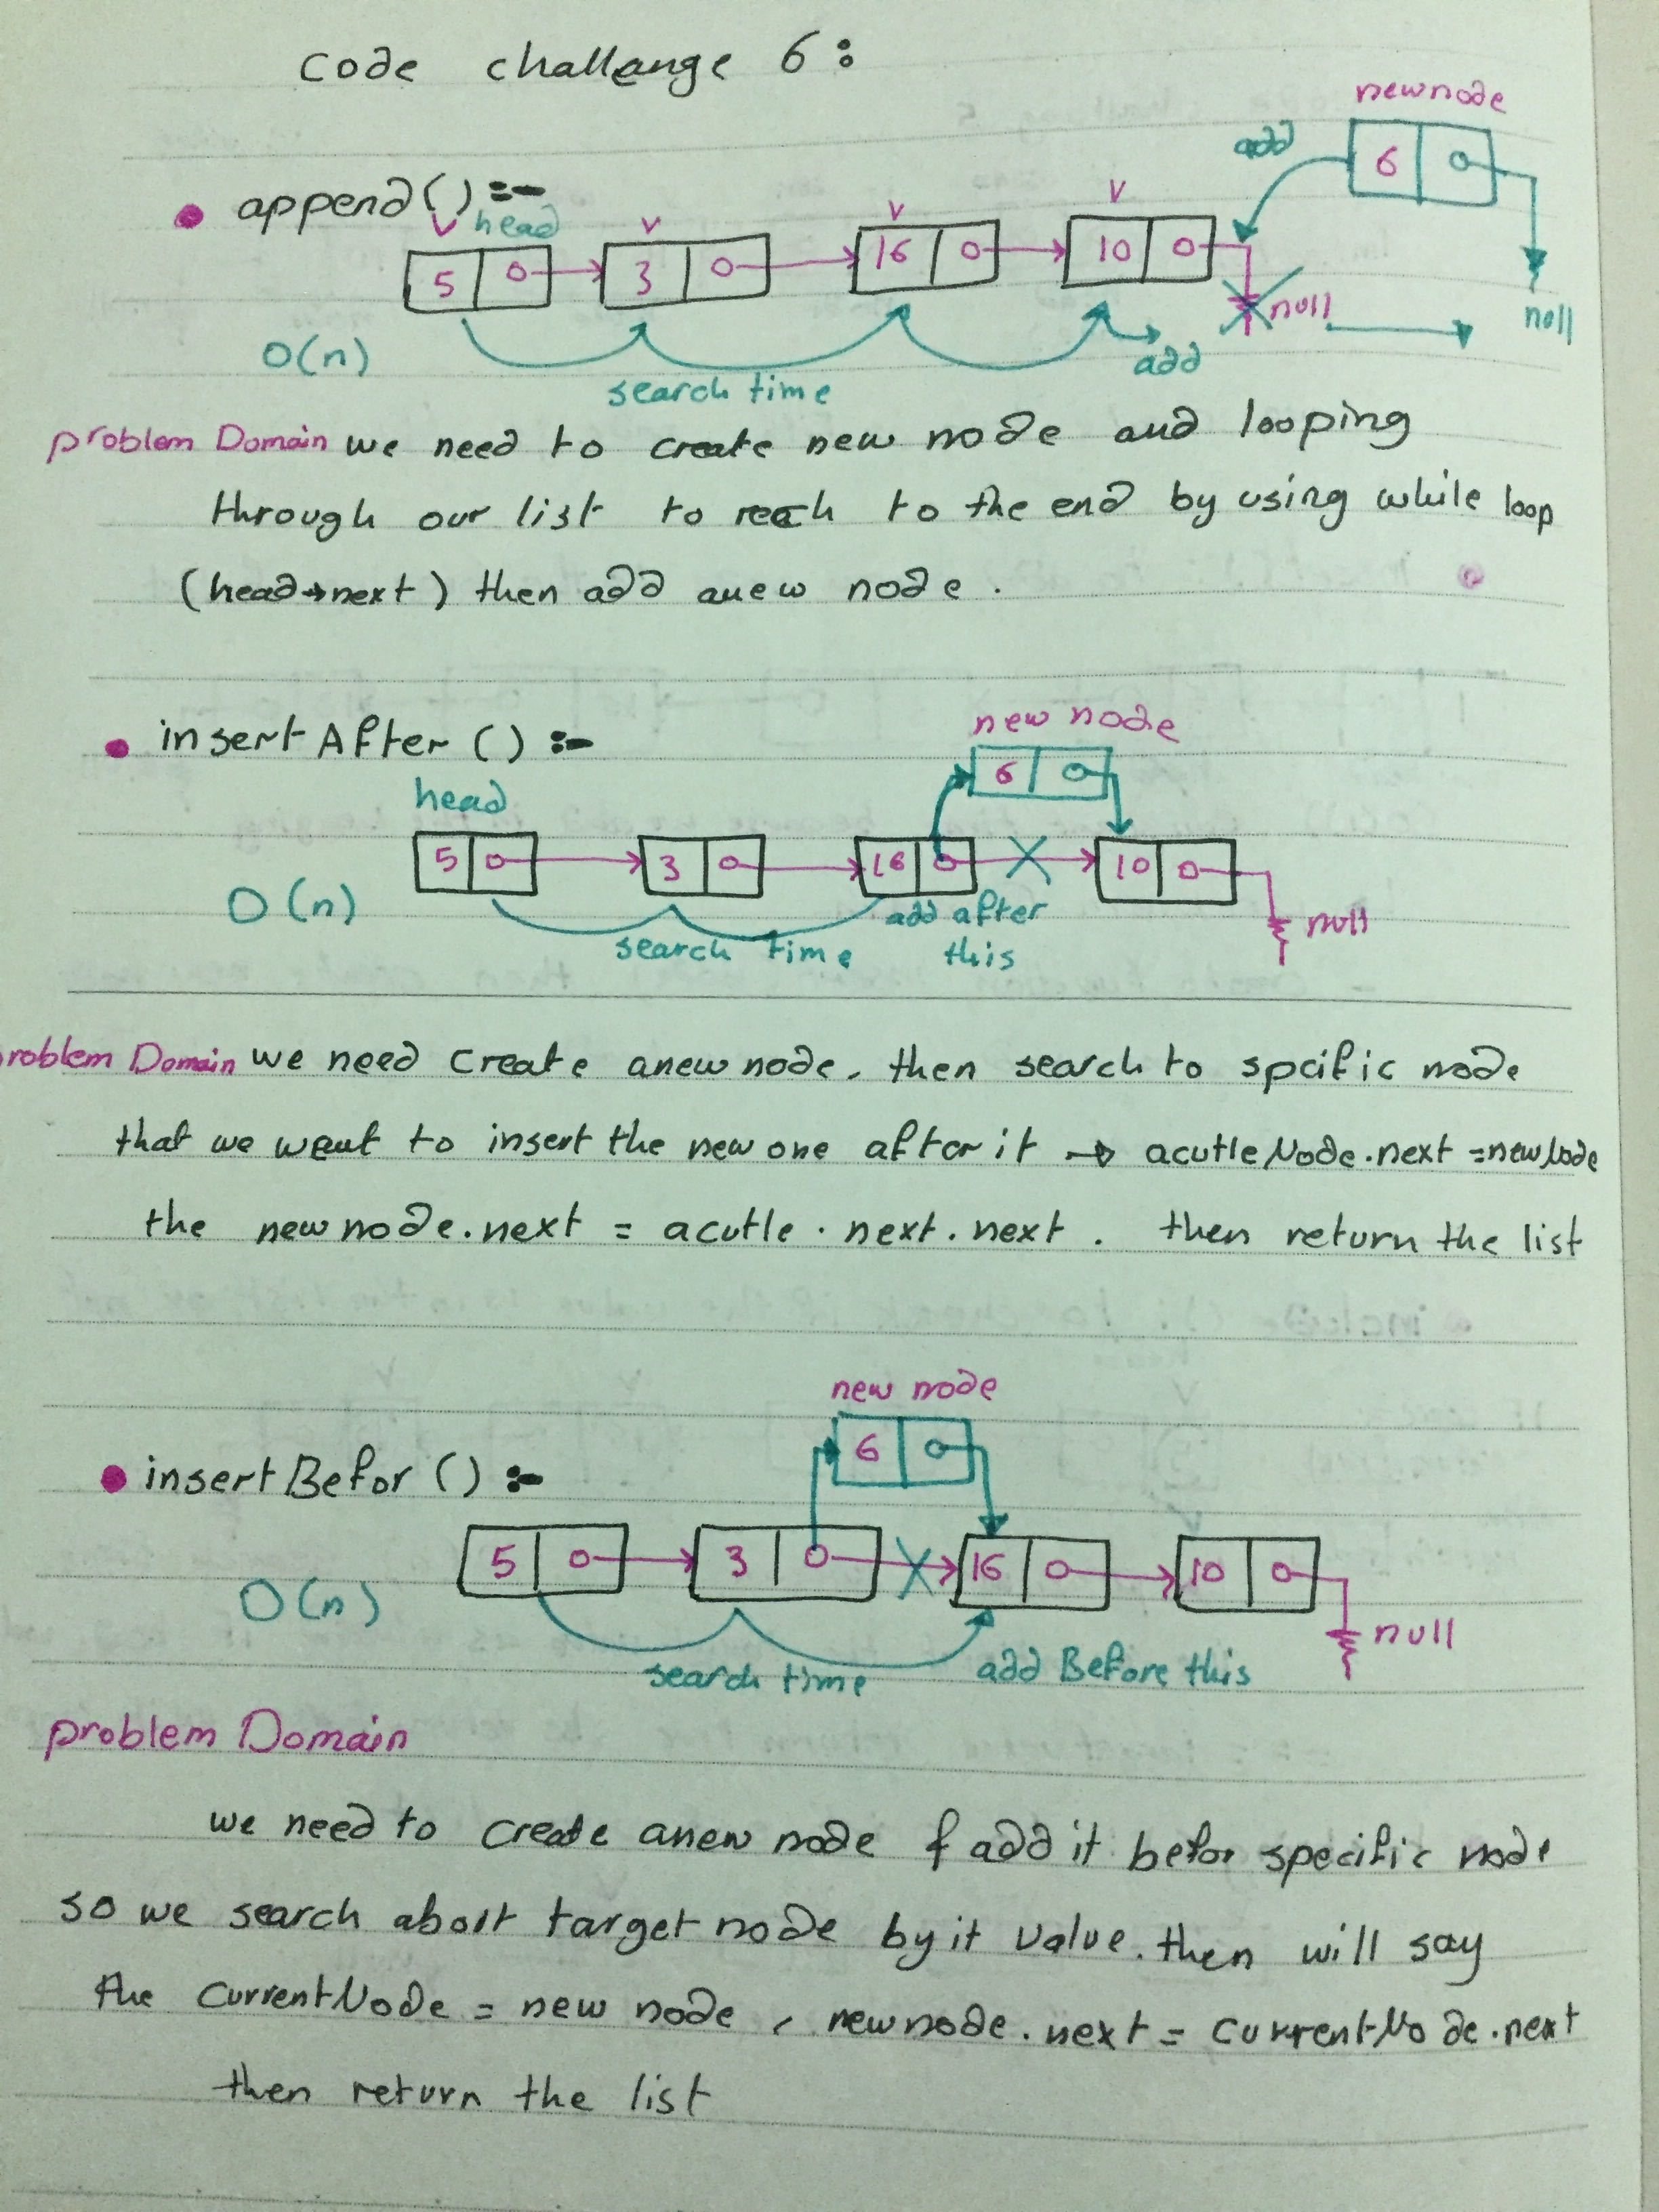 code challenge 6:
newnode
add
6
• append() :-
head
5 3 16 10
null
null
O(n)
search time
add
problem Domain we need to create new node and looping
through our list to reach to the end by using while loop
(head→next) then add anew node.
• insert After () :-
new node
6
head
5 3 16 10
O(n)
search time
add after
this
null
roblem Domain we need create anew node, then search to spcific node
that we want to insert the new one after it → acutleNode.next =newNode
the newnode.next = acutle.next.next. then return the list
new node
6
• insertBefor () :-
5 3 16 10
O(n)
search time
add Before this
null
problem Domain
we need to create anew node & add it befor specific node
so we search abost target node by it value. then will say
the currentNode = new node, newnode.next = currentNode.next
then return the list